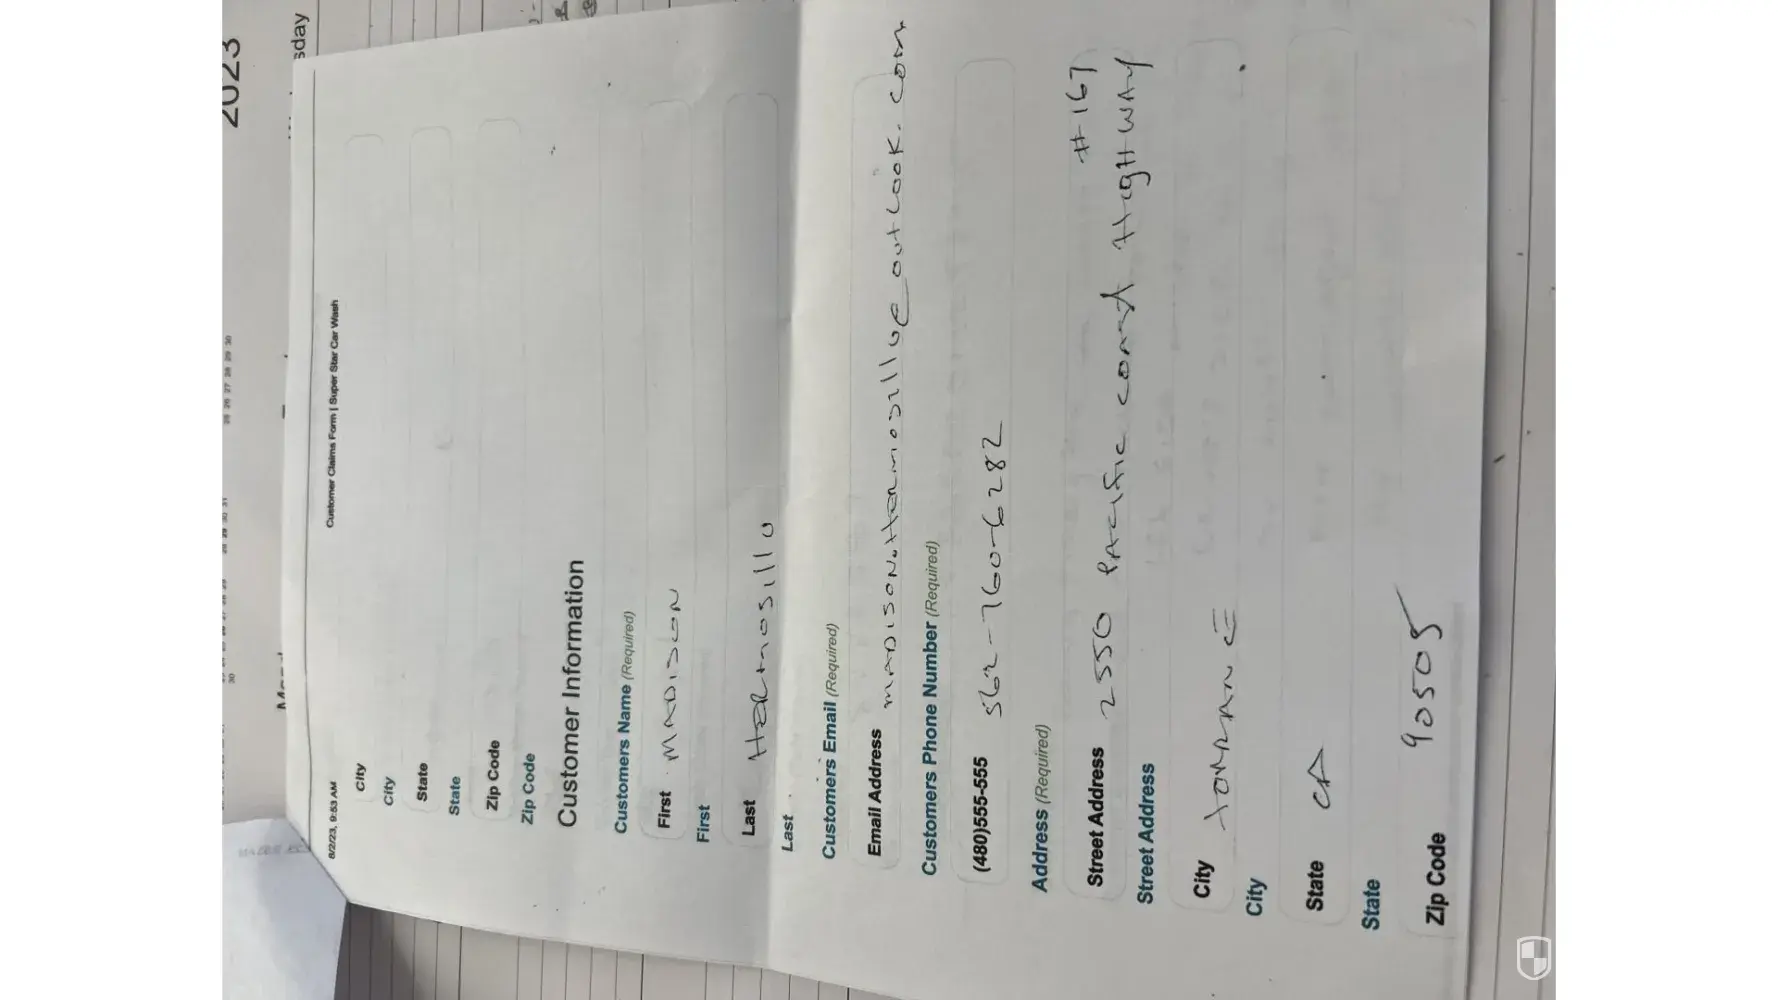 2023
sday
8/2/23, 9:53 AM
Customer Claims Form | Super Star Car Wash
City
City
State
State
Zip Code
Zip Code
Customer Information
Customers Name (Required)
First MADISON
First
Last HERMOSILLO
Last
Customers Email (Required)
Email Address MADISON.HERMOSILLO@OUTLOOK.COM
Customers Phone Number (Required)
(480)555-555 562-760-6282
Address (Required)
#167
Street Address 2550 PACIFIC COAST HIGHWAY
Street Address
City TORRANCE
City
State CA
State
Zip Code 90505